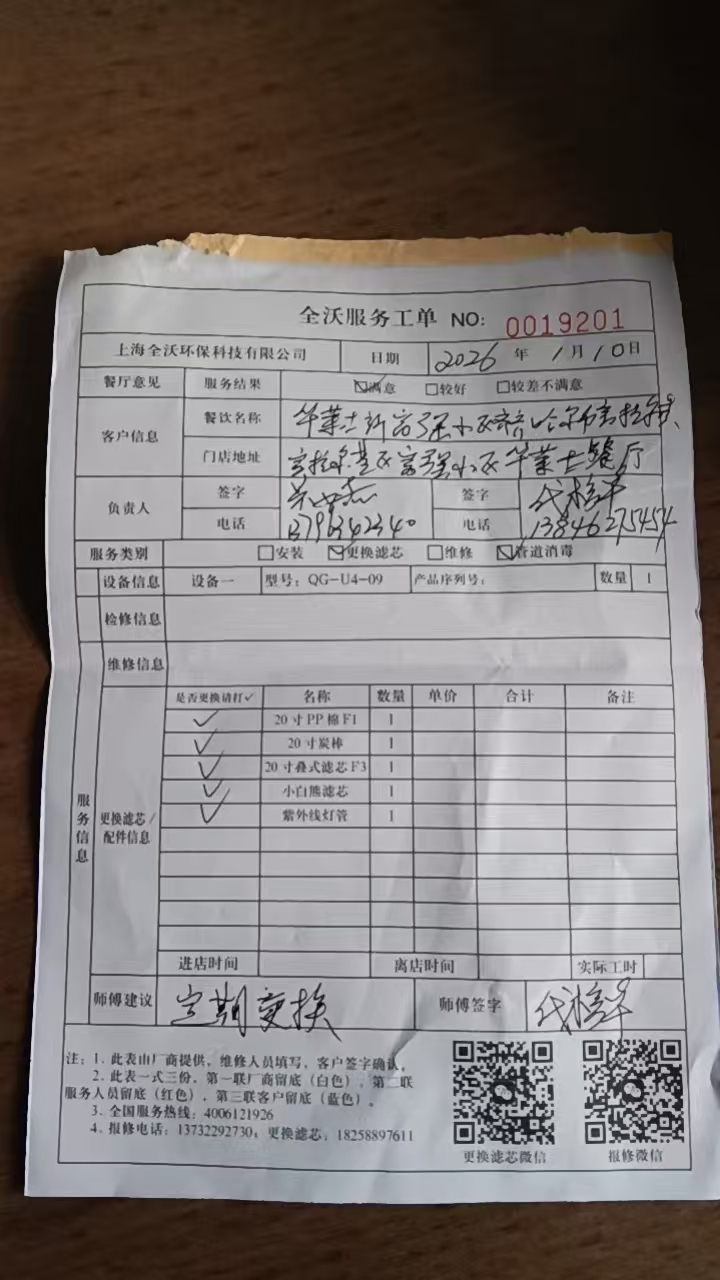 全沃服务工单 NO: 0019201
上海全沃环保科技有限公司 日期 2026 年 1 月 10 日
餐厅意见 服务结果 ☑满意 □较好 □较差不满意
客户信息 餐饮名称 华莱士 富强小区 齐哈尔市 富拉
门店地址 富拉尔基区富强小区华莱士餐厅
负责人 签字 签字
电话 电话 13846275454
服务类别 □安装 ☑更换滤芯 □维修 ☑管道消毒
设备信息 设备一 型号：QG-U4-09 产品序列号： 数量 1
检修信息
维修信息
服务信息
更换滤芯/配件信息
是否更换请打✓ 名称 数量 单价 合计 备注
✓ 20寸PP棉F1 1
✓ 20寸炭棒 1
✓ 20寸叠式滤芯F3 1
✓ 小白熊滤芯 1
✓ 紫外线灯管 1
进店时间 离店时间 实际工时
师傅建议 定期更换 师傅签字
注：1. 此表由厂商提供，维修人员填写，客户签字确认。
2. 此表一式三份，第一联厂商留底（白色），第二联
服务人员留底（红色），第三联客户留底（蓝色）。
3. 全国服务热线：4006121926
4. 报修电话：13732292730；更换滤芯：18258897611
更换滤芯微信 报修微信